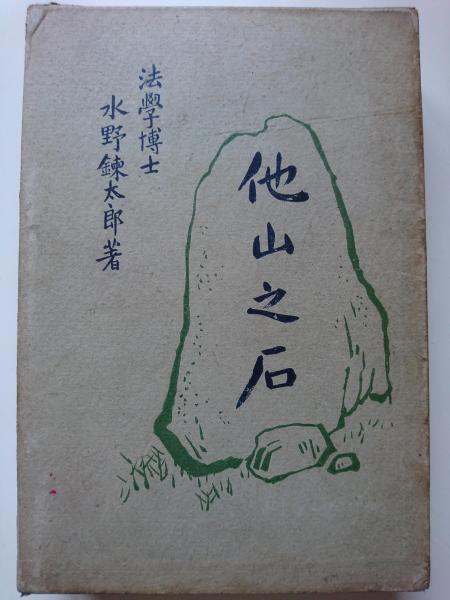 法學博士
水野錬太郎著
他山之石